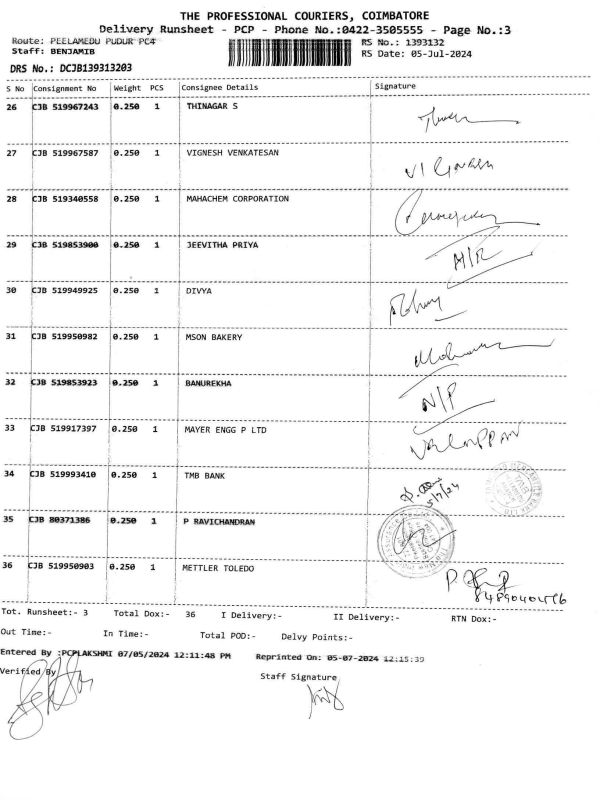 THE PROFESSIONAL COURIERS, COIMBATORE
Delivery Runsheet - PCP - Phone No.:0422-3505555 - Page No.:3
Route: PEELAMEDU PUDUR PC4 RS No.: 1393132
Staff: BENJAMIB RS Date: 05-Jul-2024
DRS No.: DCJB139313203
S No Consignment No Weight PCS Consignee Details Signature
26 CJB 519967243 0.250 1 THINAGAR S
27 CJB 519967587 0.250 1 VIGNESH VENKATESAN
28 CJB 519340558 0.250 1 MAHACHEM CORPORATION
29 CJB 519853900 0.250 1 JEEVITHA PRIYA
30 CJB 519949925 0.250 1 DIVYA
31 CJB 519950982 0.250 1 MSON BAKERY
32 CJB 519853923 0.250 1 BANUREKHA N/P
33 CJB 519917397 0.250 1 MAYER ENGG P LTD
34 CJB 519993410 0.250 1 TMB BANK
5/7/24
35 CJB 80371386 0.250 1 P RAVICHANDRAN
36 CJB 519950903 0.250 1 METTLER TOLEDO
Tot. Runsheet:- 3 Total Dox:- 36 I Delivery:- II Delivery:- RTN Dox:-
Out Time:- In Time:- Total POD:- Delvy Points:-
Entered By :PCPLAKSHMI 07/05/2024 12:11:48 PM Reprinted On: 05-07-2024 12:15:39
Verified By
Staff Signature